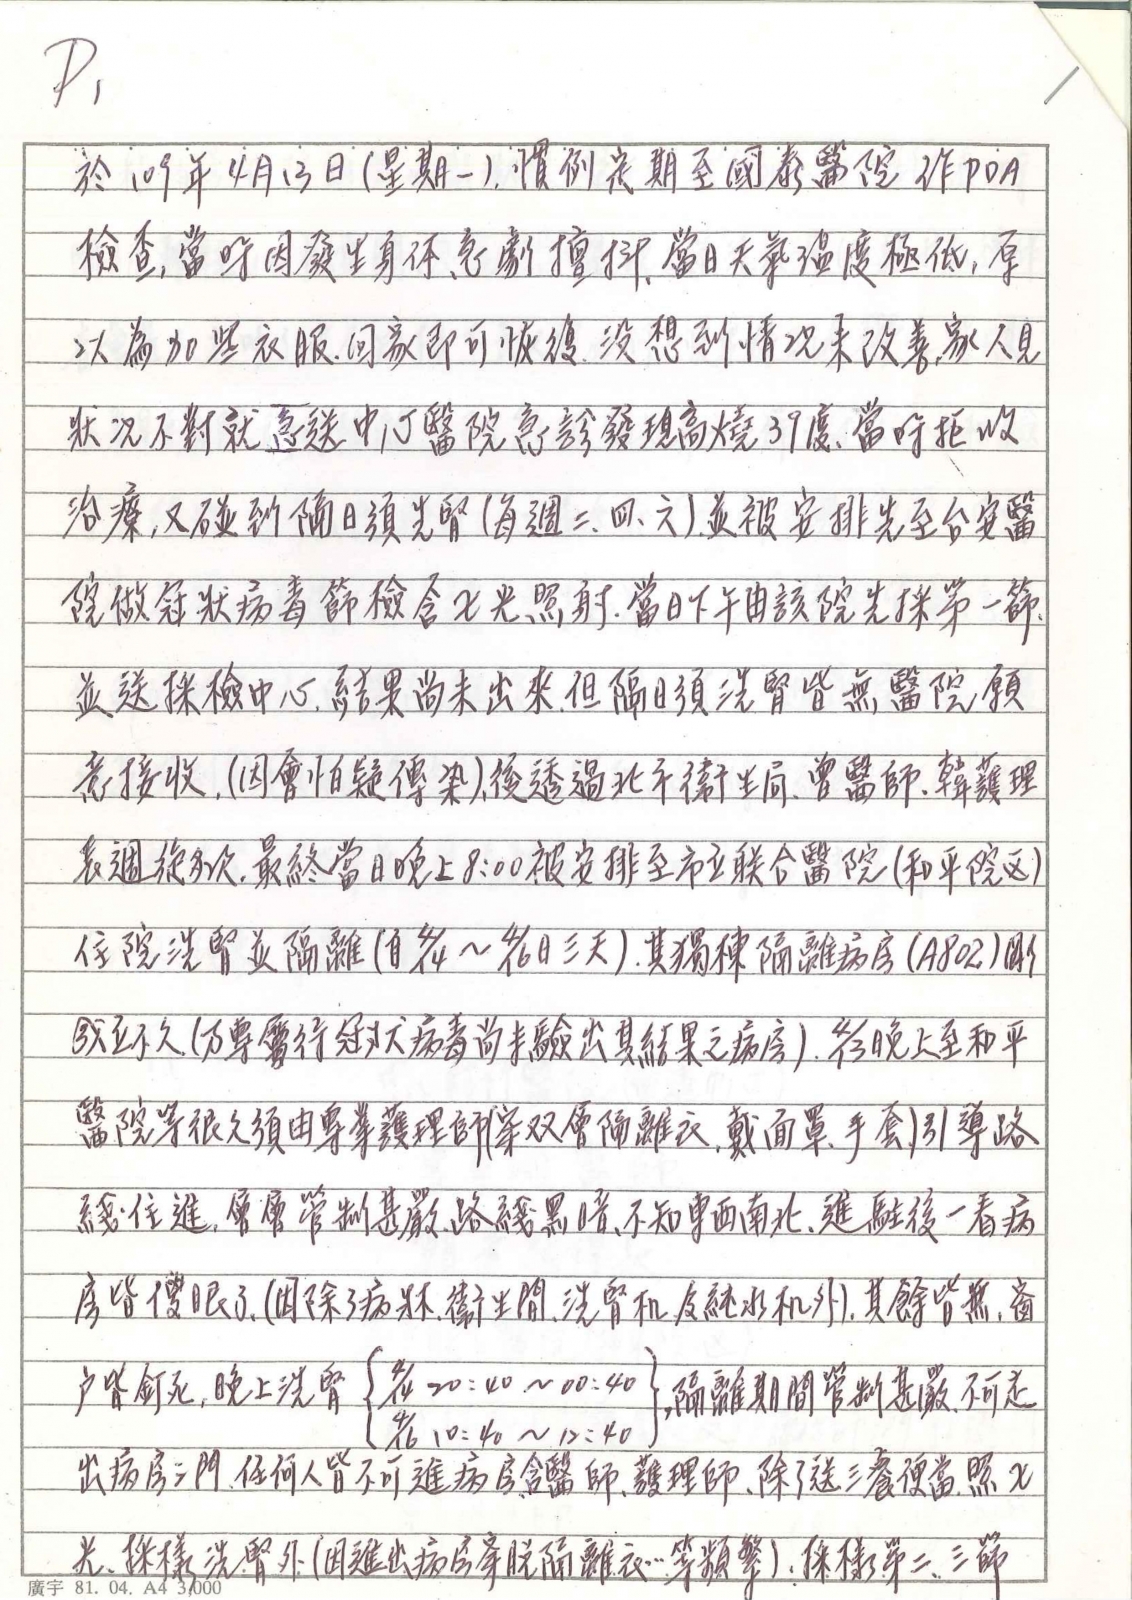 P1
於109年4月13日(星期一),慣例定期至國泰醫院作PDA
檢查,當時因發生身体、急劇擅抖、當日天氣溫度極低,原
以為加些衣服、回家即可恢復、沒想到情況未改善、家人見
狀況不對就急送中心醫院急診發現高燒39度、當時拒收
治療,又碰到隔日須洗腎(每週二、四、六),並被安排先至台安醫
院做冠狀病毒篩檢含X光照射.當日下午由該院先採第一篩、
並送採檢中心、結果尚未出來、但隔日須洗腎皆無醫院願
意接收,(因會怕疑傳染),後透過北市衛生局、曾醫師、韓護理
長週旋多次、最終當日晚上8:00被安排至市立联合醫院(和平院区)
住院洗腎並隔離(自4/14~4/16日三天).其獨棟隔離病房(A802)剛
成立不久(乃專屬行冠狀病毒尚未驗出其結果之病房)、4/13晚上至和平
醫院等很久須由專業護理師(穿双層隔離衣、戴面罩、手套)引導路
綫住進,層層管制甚嚴、路綫黑暗、不知東西南北、進駐後一看病
房皆傻眼了、(因除了病床、衛生間、洗腎机、反純水机外),其餘皆無,窗
户皆釘死,晚上洗腎{4/14 20:40~00:40
4/16 10:40~12:40},隔離期間管制甚嚴、不可走
出病房之門、任何人皆不可進病房含醫師、護理師、除了送三餐便當、照X
光、採樣洗腎外(因進出病房穿脫隔離衣…等頻繁),採樣第二、三篩
廣宇 81. 04. A4 3,000